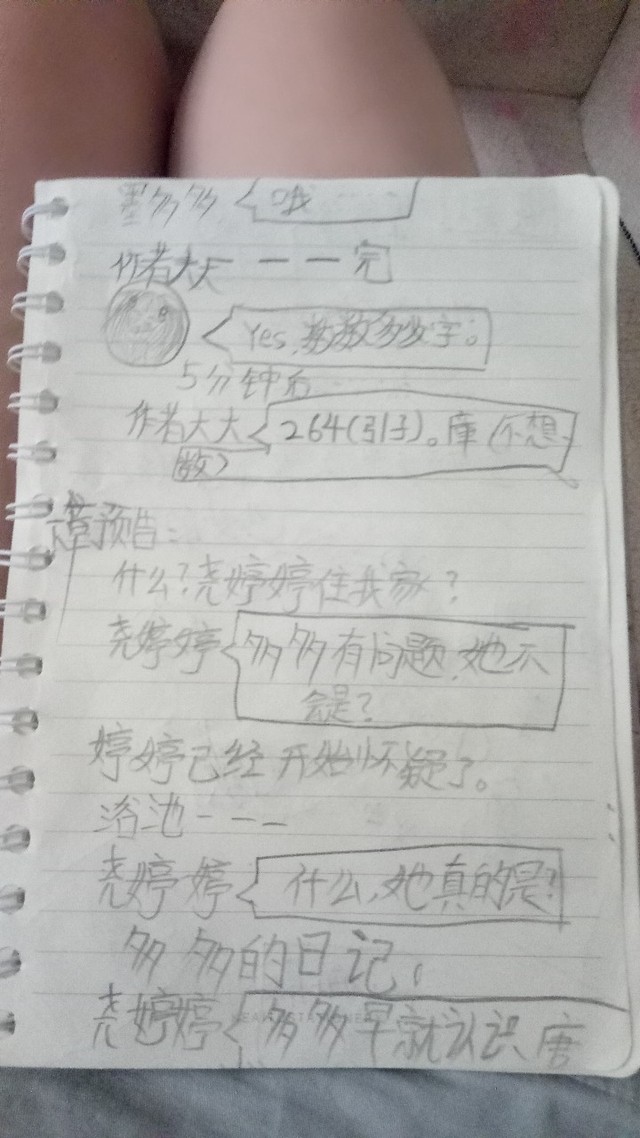 墨多多 哦……
作者大大———完
Yes,数数多少字。
5分钟后……
作者大大 264(引子)。库(不想
数)
预告:
什么?尧婷婷住我家?
尧婷婷 多多有问题,她不
会是?
婷婷已经开始怀疑了。
浴池———
尧婷婷 什么,她真的是?
多多的日记。
尧婷婷 多多早就认识唐